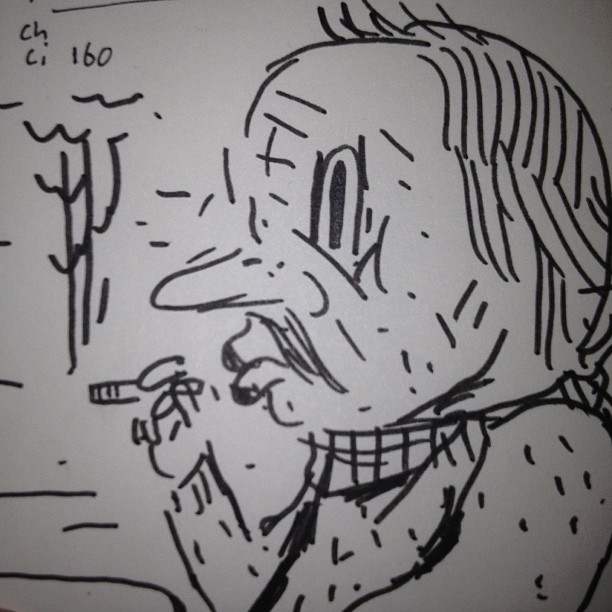 ch
ci 160